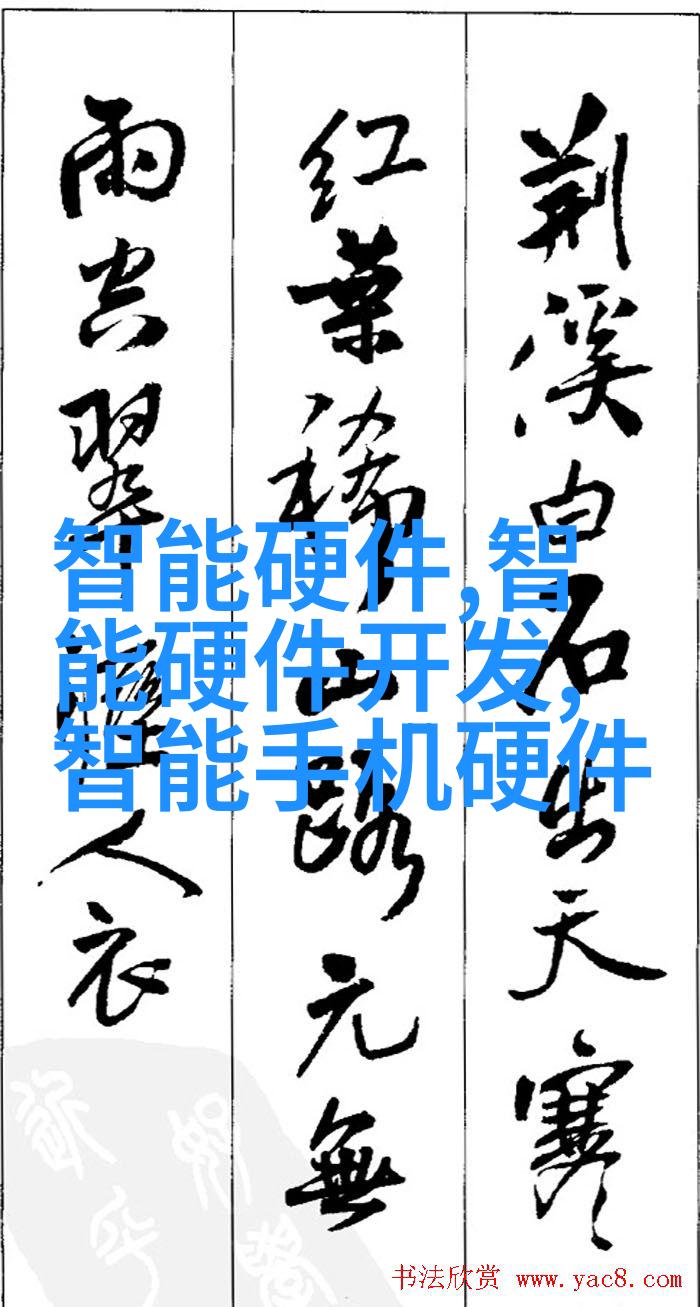 荆溪白石出天寒
红葉稀山路元無
雨空翠濕人衣
智能硬件,智
能硬件开发,
智能手机硬件
书法欣赏 www.yac8.com